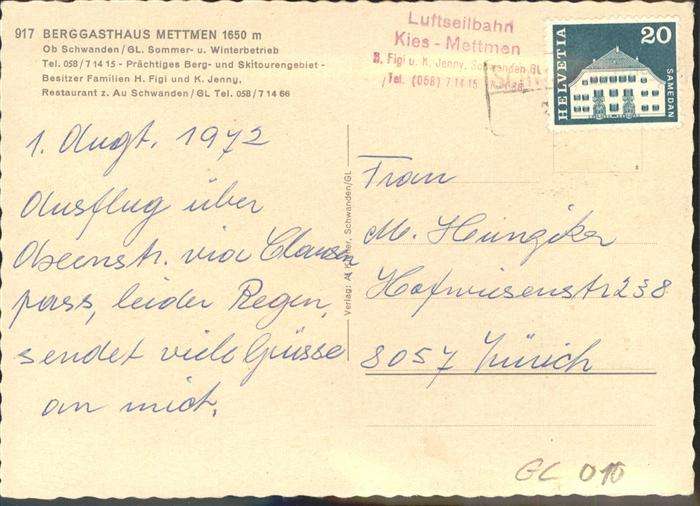 917 BERGGASTHAUS METTMEN 1650 m
Ob Schwanden/GL. Sommer- u. Winterbetrieb
Tel. 058/7 14 15 - Prächtiges Berg- und Skitourengebiet -
Besitzer Familien H. Figi und K. Jenny.
Restaurant z. Au Schwanden/GL Tel. 058/7 14 66
Luftseilbahn
Kies - Mettmen
H. Figi u. K. Jenny, Schwanden GL
Tel. (058) 7 14 15
HELVETIA
20
SAMEDAN
1. Augt. 1972
Ausflug über
via Clausen
pass, leider Regen,
sendet viele Grüsse
an mich.
Verlag: Schwanden/GL
Frau
M.
Hofwiesenstr 238
8057 Zürich
GL 010